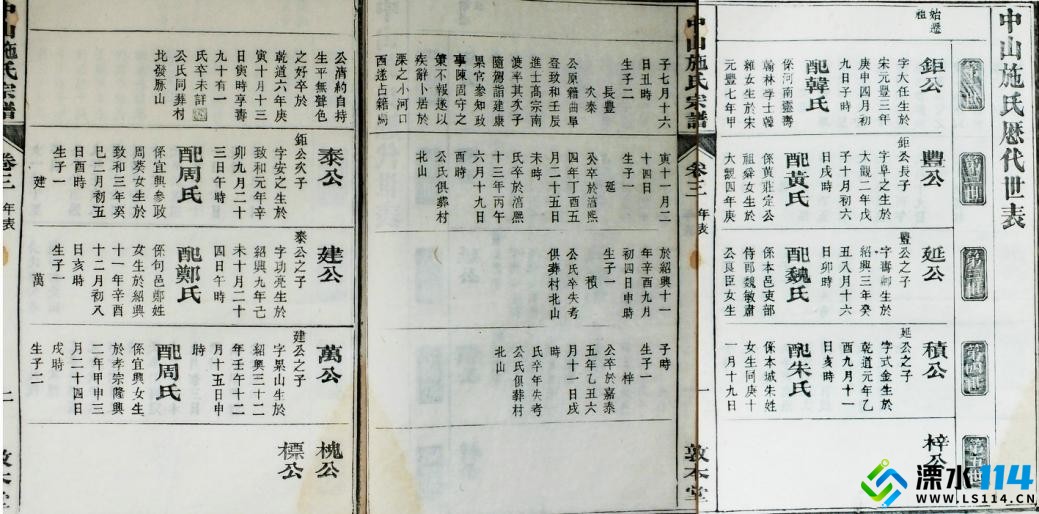 中山施氏歷代世表
始遷祖
鉅公
字大任生於
宋元豐三年
庚申四月初
九日子時
配韓氏
係河南靈壽
翰林學士韓
維女生於宋
元豐七年甲
子七月十六
日丑時
生子二
長豐
次泰
公原籍曲阜
登致和壬辰
進士高宗南
渡率其次子
隨駕詣建康
累官參知政
事陳周守之
策不報遂以
疾辭卜居於
溧之小河口
西遂占籍焉
公清約自持
生平無聲色
之好卒於
乾道六年庚
寅十月十三
日寅時享壽
九十有一
氏卒未詳
公氏同葬村
北發豚山
第二世
鉅公長子
豐公
字阜之生於
大觀二年戊
子十月初六
日戌時
配黃氏
係黃莊定公
祖舜女生於
大觀四年庚
寅十一月二
十四日
生子一
延
公卒於淳熙
四年丁酉五
月二十五日
未時
氏卒於淳熙
十三年丙午
六月十九日
酉時
公氏俱葬村
北山
鉅公次子
泰公
字安之生於
致和元年辛
卯九月二十
三日午時
配周氏
係宜興參政
周葵女生於
致和三年癸
巳二月初五
日酉時
生子一
建
豐公之子
延公
字壽卿生於
紹興三年癸
丑八月十六
日卯時
配魏氏
係本邑吏部
侍郎魏敏肅
公良臣女生
於紹興十一
年辛酉九月
初四日申時
生子一
積
公氏卒失考
俱葬村北山
泰公之子
建公
字功亮生於
紹興九年己
未十月二十
四日午時
配鄭氏
係句邑鄭姓
女生於紹興
十一年辛酉
十二月初八
日亥時
生子一
萬
第四世
延公之子
積公
字式金生於
乾道元年乙
酉九月十一
日亥時
配朱氏
係本城朱姓
女生同庚十
一月十九日
子時
生子一
梓
公卒於嘉泰
五年乙丑六
月十一日戌
時
氏卒年失考
公氏俱葬村
北山
建公之子
萬公
字累山生於
紹興三十二
年壬午十二
月十五日申
時
配周氏
係宜興女生
於孝宗隆興
二年甲申三
月二十四日
戌時
生子二
第五世
梓公
槐公
標公
中山施氏宗譜
卷三
年表
一
敦本堂
中山施氏宗譜
卷三
年表
一
敦本堂
溧水114
WWW.LS114.CN